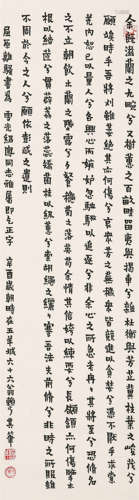 余既滋蘭之九畹兮又樹蕙之百畝畦留夷與揭車兮雜杜衡與芳芷冀枝葉之峻茂兮
願竢時乎吾將刈雖萎絕其亦何傷兮哀衆芳之蕪穢衆皆競進以貪婪兮憑不厭乎求索
羌內恕己以量人兮各興心而嫉妒忽馳騖以追逐兮非余心之所急老冉冉其將至兮恐脩名
之不立朝飲木蘭之墜露兮夕餐秋菊之落英苟余情其信姱以練要兮長顑頷亦何傷擥木
根以結茝兮貫薜荔之落蕊矯菌桂以紉蕙兮索胡繩之纚纚謇吾法夫前脩兮非時俗之所服雖
不周於今之人兮願依彭咸之遺則
屈原離騷書為 雲光同志雅屬即乞正字 辛酉歲朝時在五羊城六十六翁